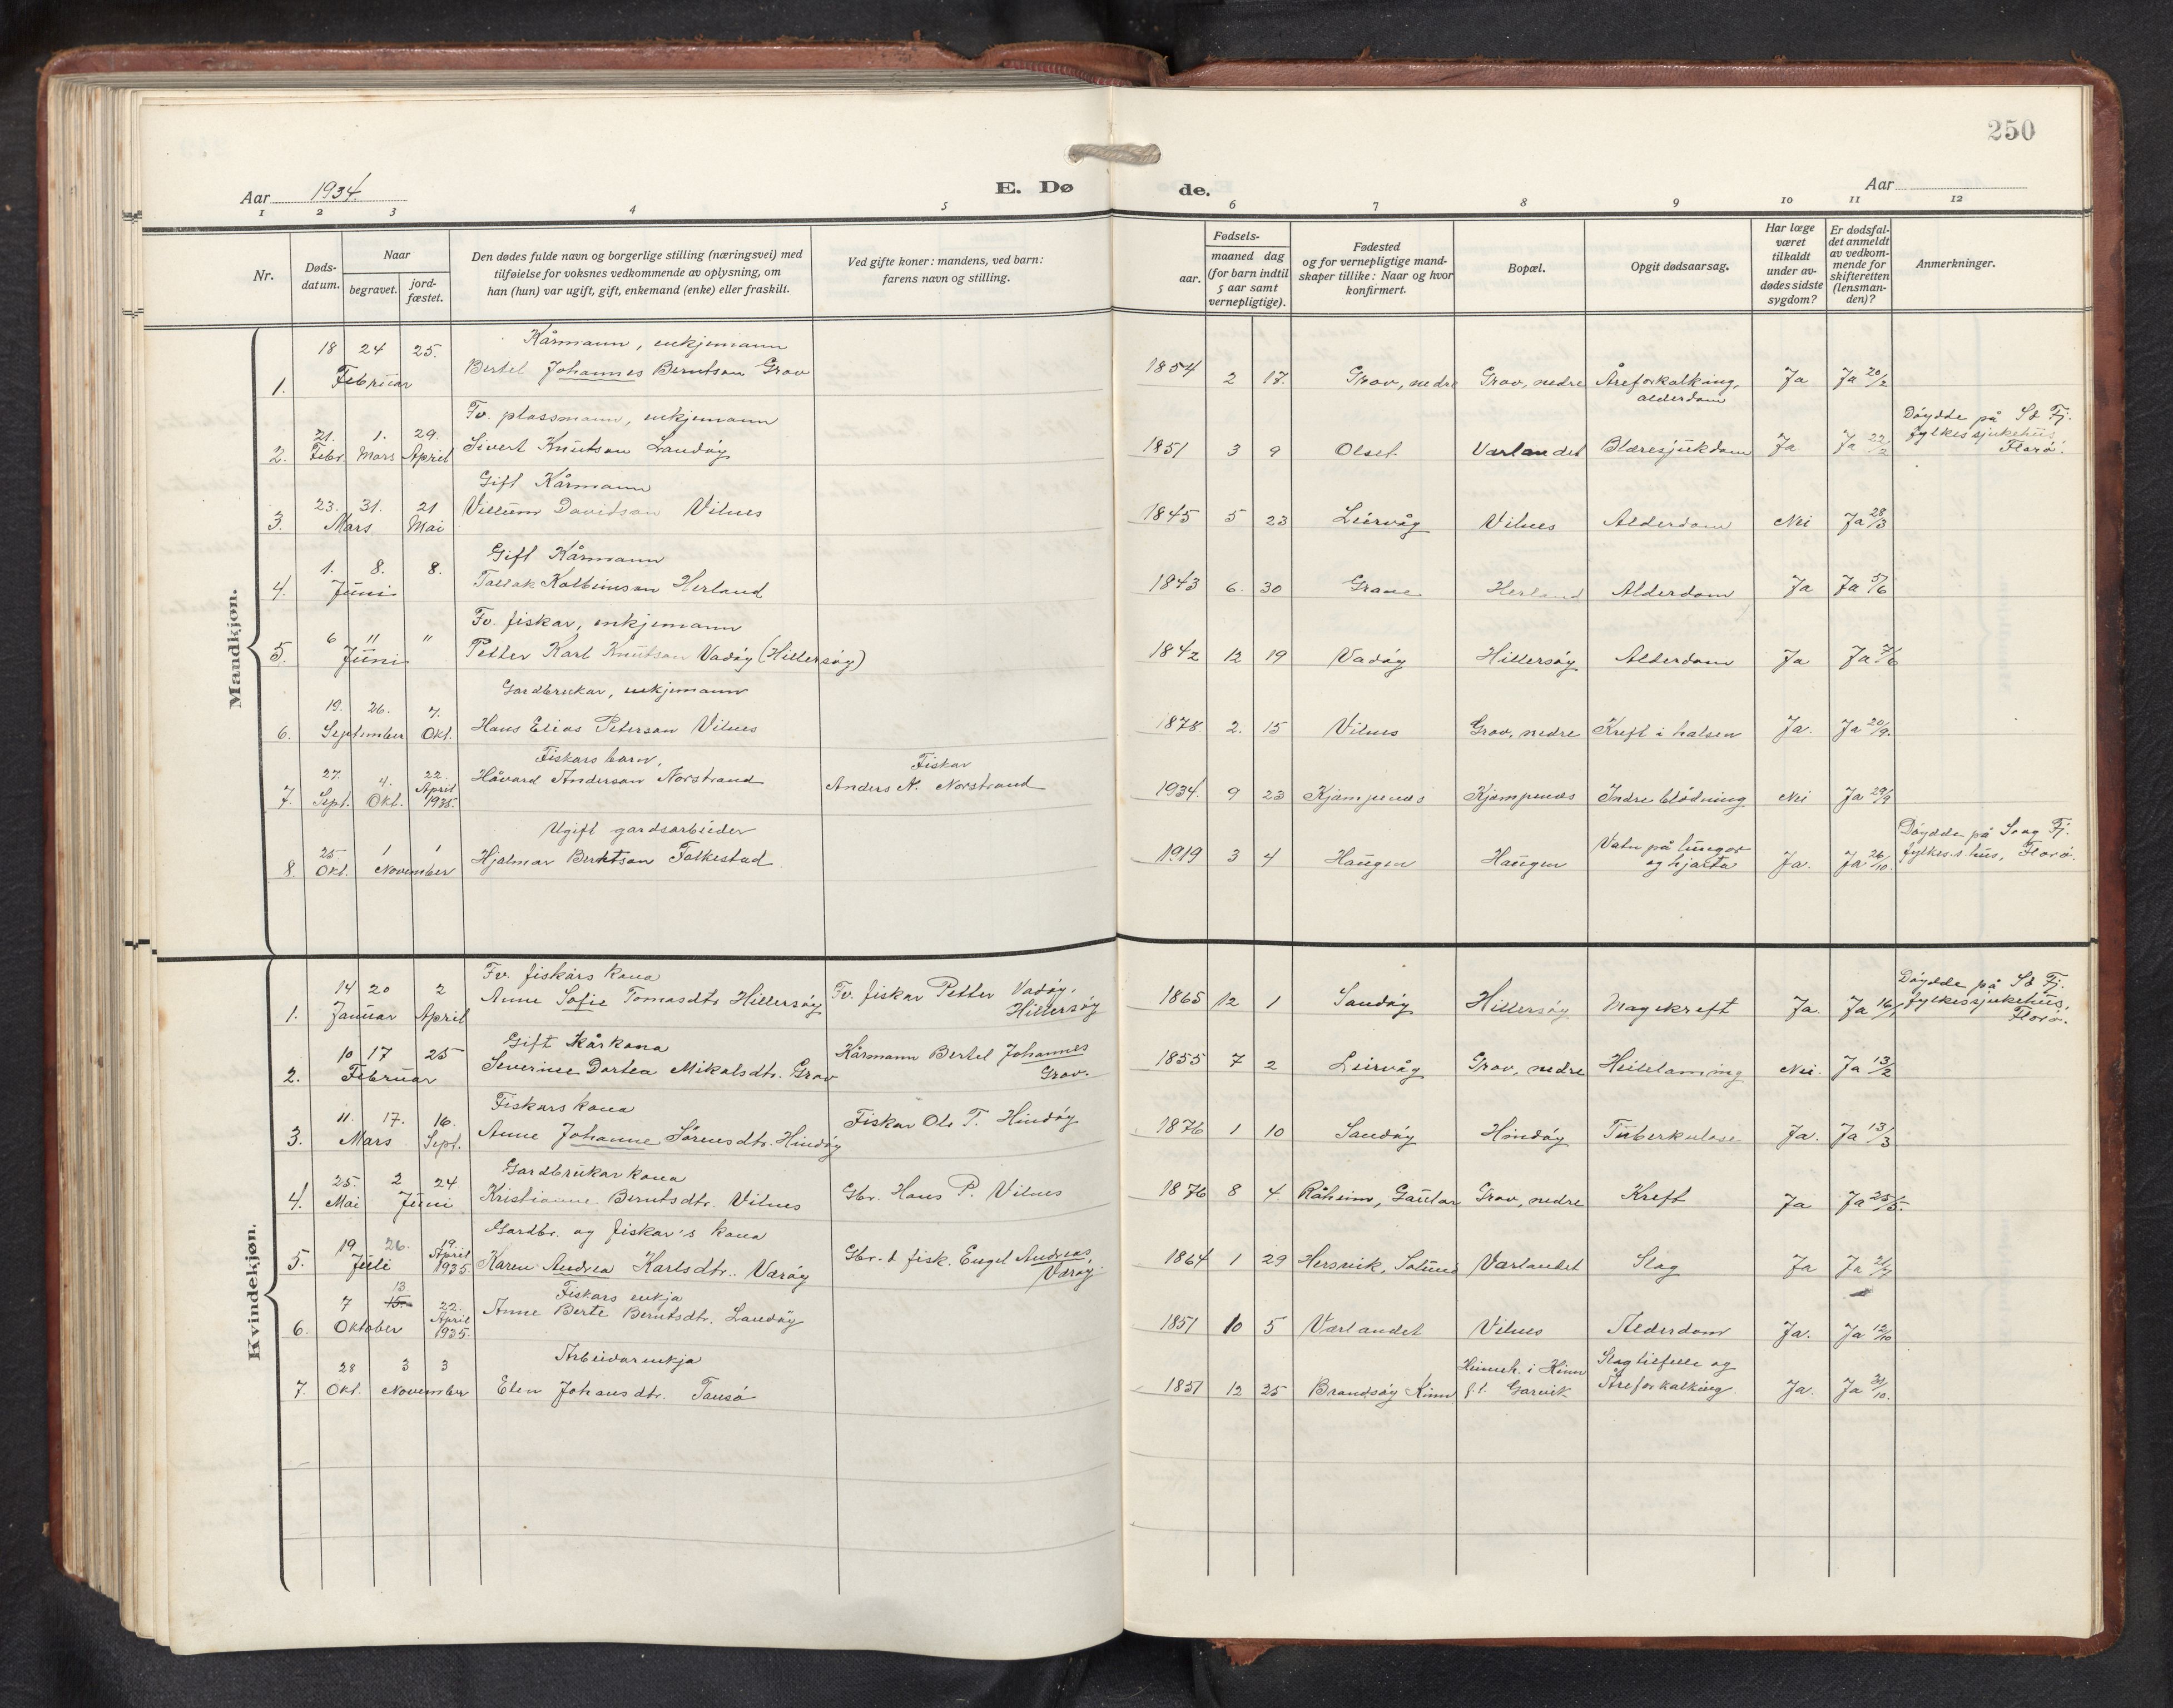 250
Aar 1934.
E. Dø
de.
Aar
1 2 3 4 5 6 7 8 9 10 11 12
Nr.
Døds-
datum.
Naar
begravet.
jord-
fæstet.
Den dødes fulde navn og borgerlige stilling (næringsvei) med
tilføielse for voksnes vedkommende av oplysning, om
han (hun) var ugift, gift, enkemand (enke) eller fraskilt.
Ved gifte koner: mandens, ved barn:
farens navn og stilling.
Fødsels-
aar.
maaned dag
(for barn indtil
5 aar samt
vernepligtige).
Fødested
og for vernepligtige mand-
skaper tillike: Naar og hvor
konfirmert.
Bopæl.
Opgit dødsaarsag.
Har læge
været
tilkaldt
under av-
dødes sidste
sygdom?
Er dødsfal-
det anmeldt
av vedkom-
mende for
skifteretten
(lensman-
den)?
Anmerkninger.
Mandkjøn.
18 24 25. Kårmann, enkjemann
1. Februar Bertel Johannes Berntson Grov 1854 2 17. Grov, nedre Grov, nedre Åreforkalking, Ja Ja 20/2
alderdom
Fv. plassmann, enkjemann
21. 1. 29.
2. Febr. Mars April Sivert Knutson Landöy 1851 3 9 Olset Værlandet Blæresjukdom Ja Ja 22/2
Döydde på S& Fj.
fylkessjukehus,
Florö.
Gift Kårmann
23. 31. 21
3. Mars Mai Villum Davidson Vilnes 1845 5 23 Leirvåg Vilnes Alderdom Nei Ja 28/3
Gift Kårmann
1. 8. 8.
4. Juni Tallak Kolbeinson Herland 1843 6. 30 Grane Herland Alderdom Ja Ja 5/6
Fv. fiskar, enkjemann
6 " "
5. Juni Petter Karl Knutson Vadöy (Hillersöy) 1842 12 19 Vadöy Hillersöy Alderdom Ja Ja 7/6
Gardbrukar, enkjemann
19. 26. 7.
6. September Okt. Hans Elias Peterson Vilnes 1878. 2. 15 Vilnes Grov, nedre Kreft i halsen Ja. Ja 20/9.
Fiskars barn, Fiskar
27. 4. 22.
April
7. Sept. Okt. 1935. Håvard Anderson Norstrand Anders N. Norstrand 1934. 9 23 Kjempenes Kjempenes Indre blödning Nei Ja 29/9
Ugift gardsarbeider
25 1 1
8. Okt. November Hjalmar Berntson Folkestad 1919 3 4 Haugen Haugen Vatn på lungor Ja. Ja 26/10.
og hjarta
Döydde på Sogn Fj.
fylkes.s.hus, Florö.
Kvindekjøn.
Fv. fiskars kona
14 20 2
1. Januar April Anne Sofie Tomasdtr. Hillersöy Fv. fiskar Petter Vadöy, 1865 12 1 Sandöy Hillersöy Magekreft Ja. Ja 16/1
Hillersöy
Döydde på S& Fj.
fylkessjukehus,
Florö.
Gift Kårkona
10 17 25
2. Februar Severine Dortea Mikalsdtr. Grov Kårmann Bertel Johannes 1855 7 2 Leirvåg Grov, nedre Heilelamning Nei. Ja 13/2
Grov.
Fiskars kona
11. 17. 16.
3. Mars Sept. Anne Johanne Sörensdtr. Hindöy Fiskar Ole T. Hindöy 1876 1 10 Sandöy Hindöy Tuberkulose Ja. Ja 13/3
Gardbrukar kona
25. 2 24
4. Mai Juni Kristianne Berntsdtr. Vilnes Gbr. Hans P. Vilnes 1876 8 4. Råheim, Gaular Grov, nedre Kreft Ja Ja 25/5.
Gardbr. og fiskar's kona
19 26. 19.
April
5. Juli 1935 Karen Andrea Karlsdtr. Værøy Gbr. & fisk. Engel Andreas 1864 1 29 Hersvik, Solund Værlandet Slag Ja Ja 21/7
Værøy.
Fiskars enkja
7 13 22.
15. April
6. Oktober 1935. Anne Berte Berntsdtr. Landöy 1851 10 5 Værlandet Vilnes Alderdom Ja. Ja 12/10
Arbeidarenkja
28 3 3
7. Okt. November Elen Johansdtr. Tansö 1851 12 25 Brandsöy Kinn Heimeh. i Kinn Slagtilfelle og Ja. Ja 31/10.
f.t. Gorvik Åreforkalking.